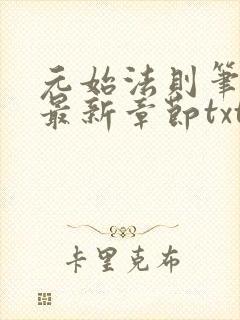 元始法则筆
最新章節txt
卡里克布